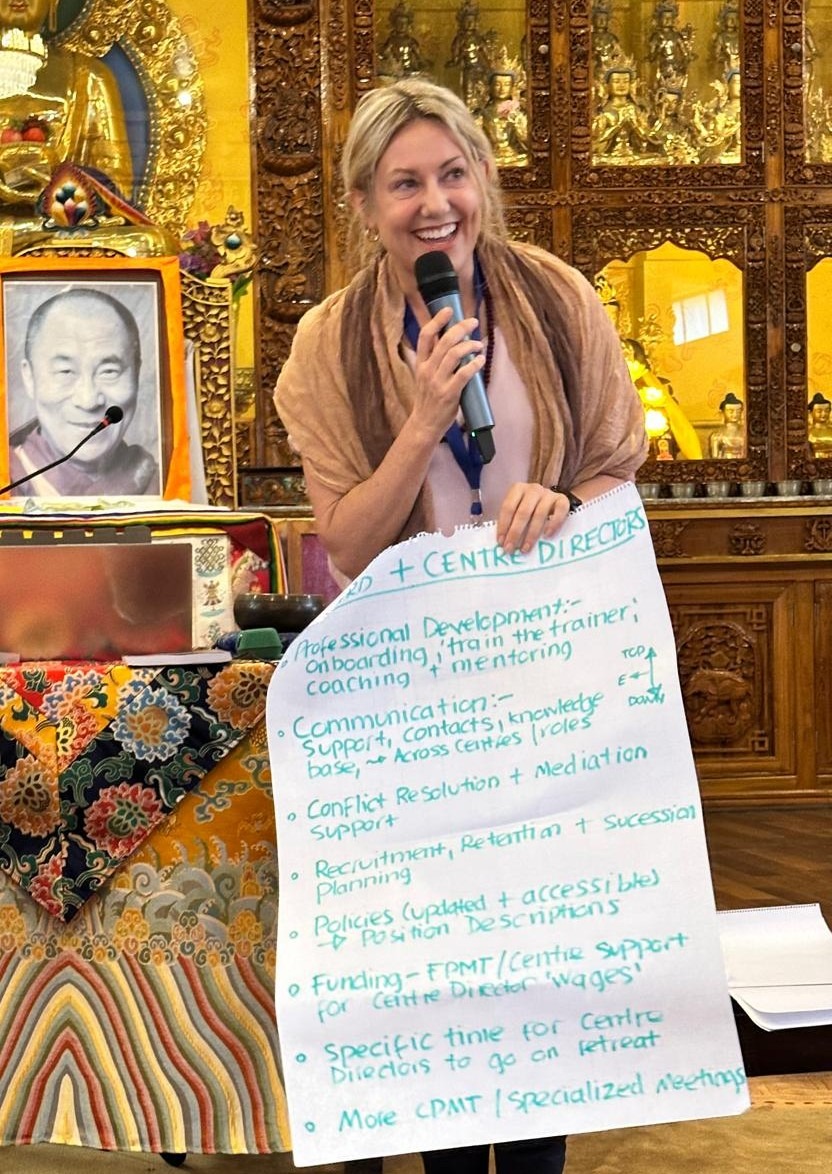 RD + CENTRE DIRECTORS
Professional Development:-
onboarding, 'train the trainer',
coaching + mentoring
TOP
E
DOWN
Communication:-
Support, contacts, knowledge
base, → Across Centres / roles
Conflict Resolution + Mediation
Support
Recruitment, Retention + Sucession
Planning
Policies (updated + accessible)
→ Position Descriptions
Funding - FPMT/Centre support
for Centre Director 'Wages'
Specific time for Centre
Directors to go on retreat
More CPMT / Specialized Meetings